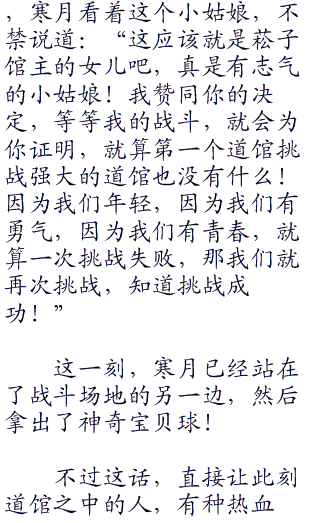 ，寒月看着这个小姑娘，不
禁说道：“这应该就是菘子
馆主的女儿吧，真是有志气
的小姑娘！我赞同你的决
定，等等我的战斗，就会为
你证明，就算第一个道馆挑
战强大的道馆也没有什么！
因为我们年轻，因为我们有
勇气，因为我们有青春，就
算一次挑战失败，那我们就
再次挑战，知道挑战成
功！”
这一刻，寒月已经站在
了战斗场地的另一边，然后
拿出了神奇宝贝球！
不过这话，直接让此刻
道馆之中的人，有种热血